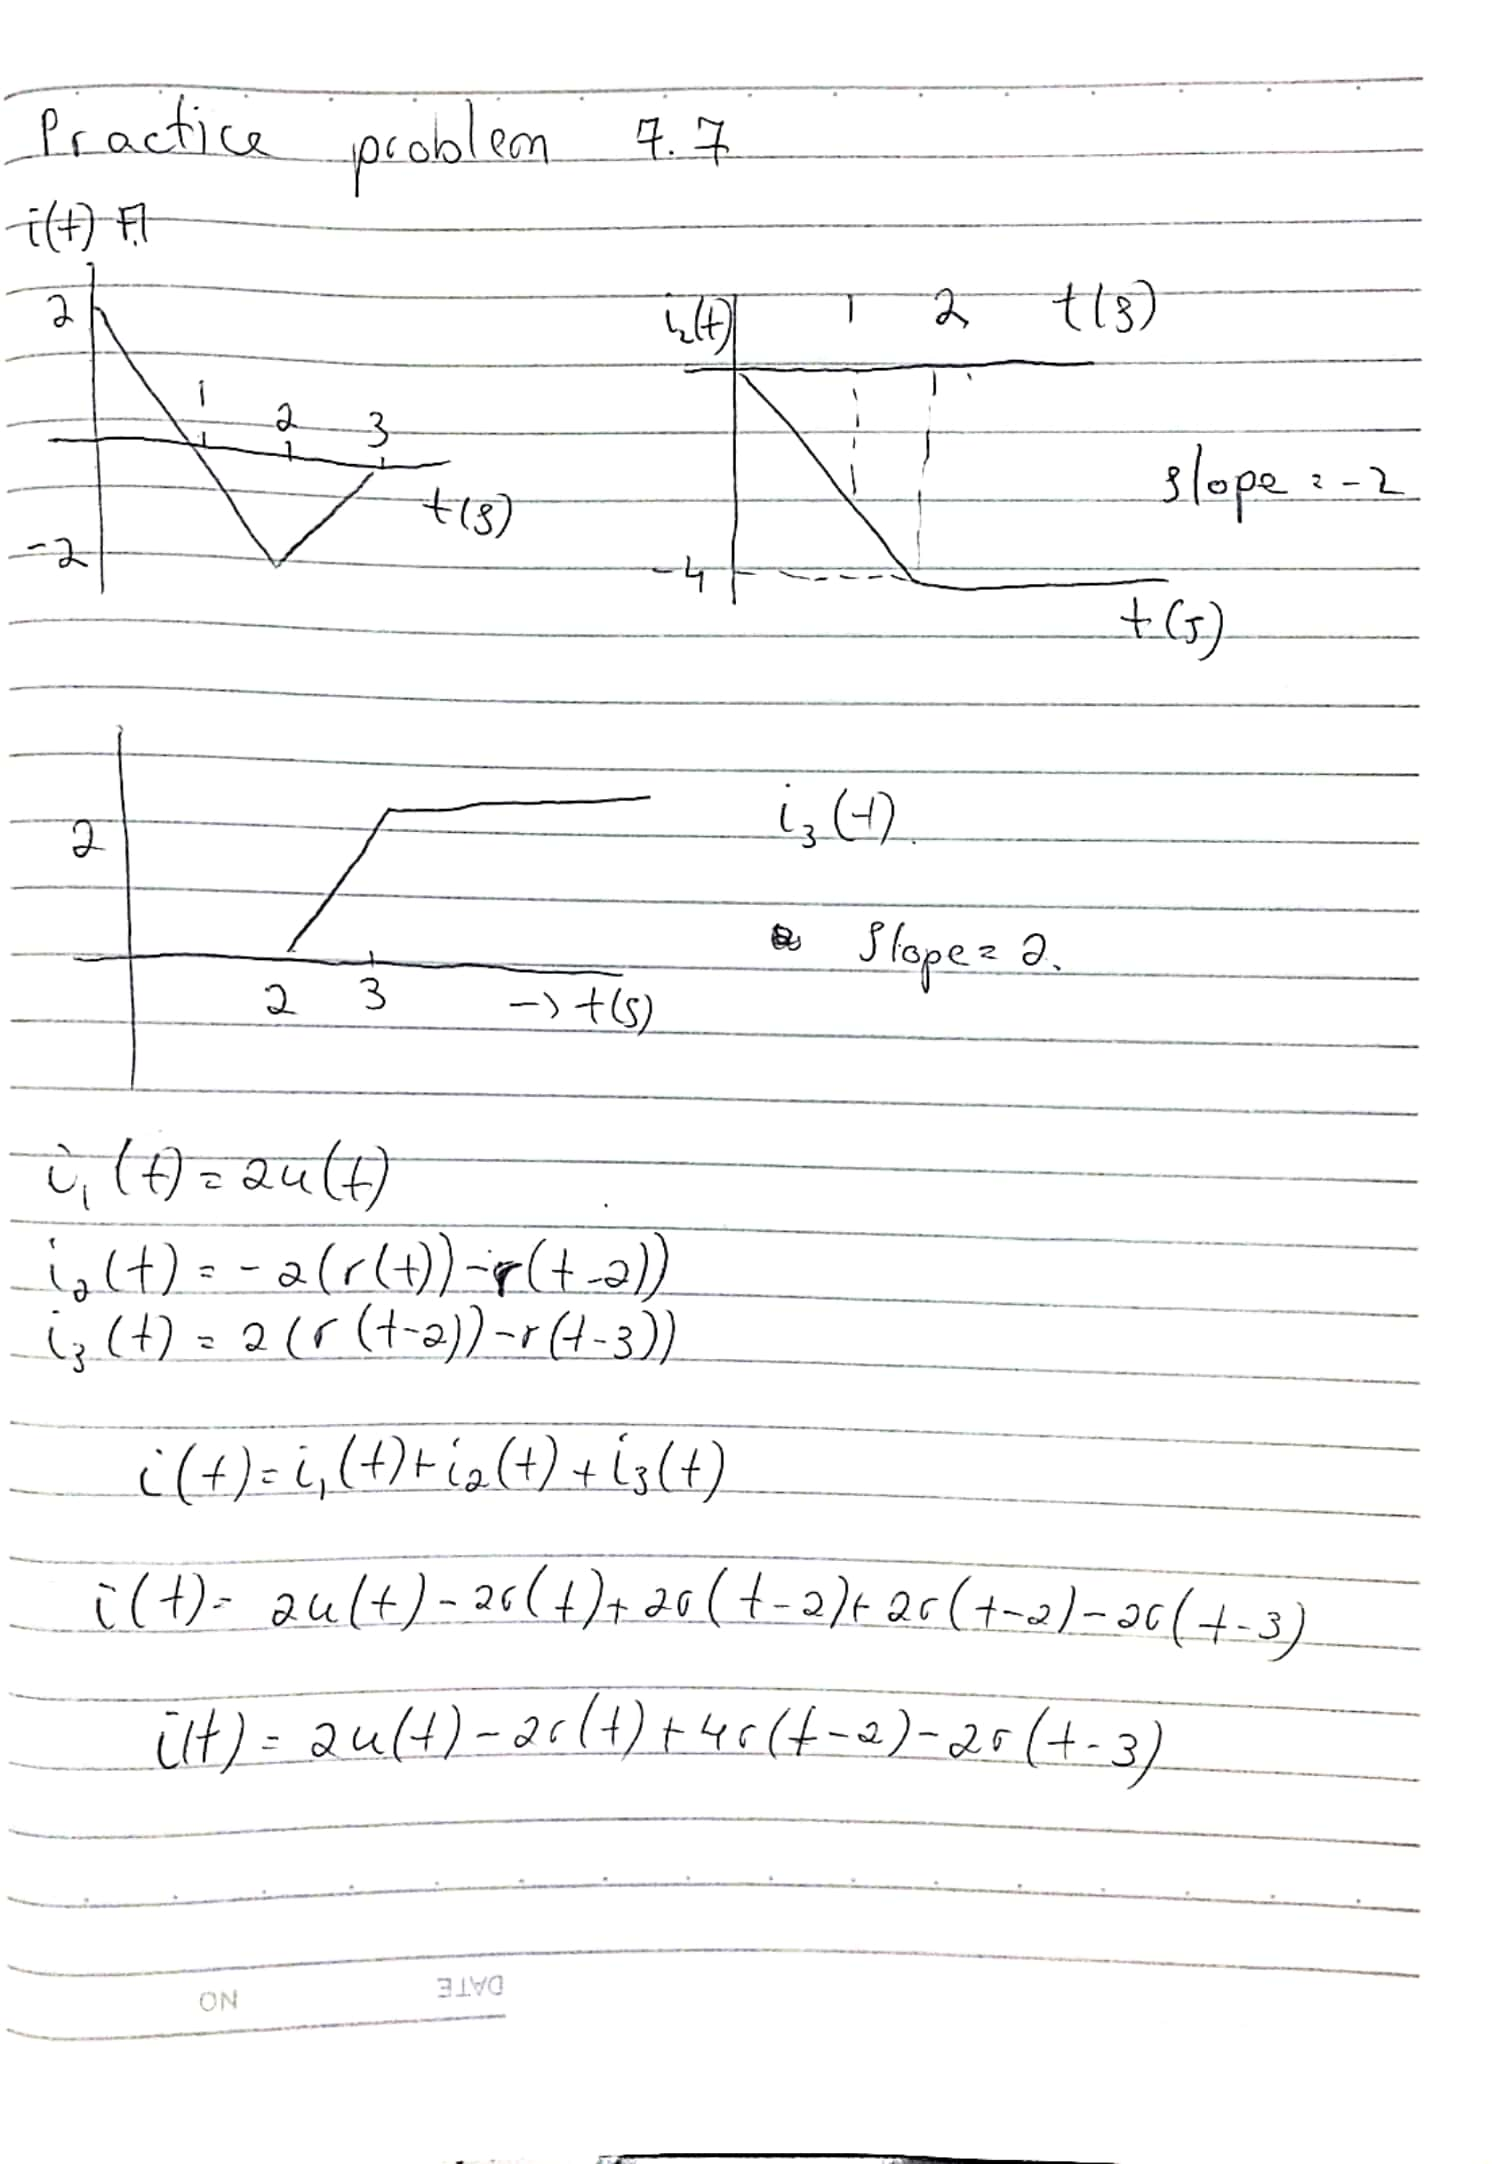 Practice problem 7.7
i(t) A
2
1
2
3
t(s)
-2
i2(t)
1
2
t(s)
slope = -2
-4
t(s)
2
i3(t).
Slope = 2.
2
3
-> t(s)
i1(t) = 2u(t)
i2(t) = -2(r(t))-r(t-2))
i3(t) = 2(r(t-2))-r(t-3))
i(t) = i1(t)+i2(t)+i3(t)
i(t) = 2u(t)-2r(t)+2r(t-2)+2r(t-2)-2r(t-3)
i(t) = 2u(t)-2r(t)+4r(t-2)-2r(t-3)
DATE
NO